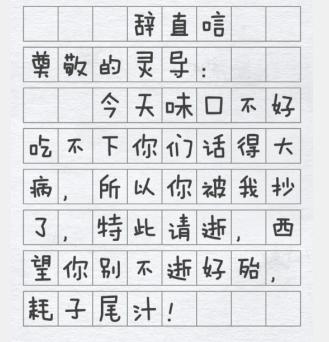 辞直唁
尊敬的灵导：
今天味口不好
吃不下你们话得大
病，所以你被我抄
了，特此请逝，西
望你别不逝好殆，
耗子尾汁！